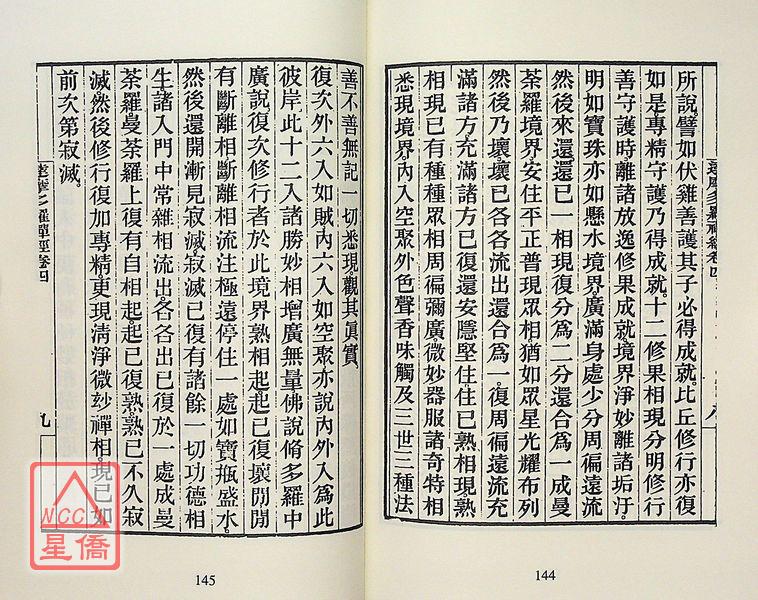 達摩多羅禪經卷四
所說譬如伏雞善護其子必得成就比丘修行亦復
如是專精守護乃得成就十二修果相現分明修行
善守護時離諸放逸修果成就境界淨妙離諸垢汙
明如寶珠亦如懸水境界廣滿身處少分周徧遠流
然後來還還已一相現復分爲二分還合爲一成曼
荼羅境界安住平正普現眾相猶如眾星光耀布列
然後乃壞壞已各各流出還合爲一復周徧遠流充
滿諸方充滿諸方已復還安隱堅住住已熟相現熟
相現已有種種眾相周徧彌廣微妙器服諸奇特相
悉現境界內入空聚外色聲香味觸及三世三種法
144
善不善無記一切悉現觀其眞實
復次外六入如賊內六入如空聚亦說內外入爲此
彼岸此十二入諸勝妙相增廣無量佛說脩多羅中
廣說復次修行者於此境界熟相起起已復壞開開
有斷離相斷離相流注極遠停住一處如寶瓶盛水
然後還開漸見寂滅寂滅已復有諸餘一切功德相
生諸入門中常雜相流出各各出已復於一處成曼
荼羅曼荼羅上復有自相起起已復熟熟已不久寂
滅然後修行復加專精更現清淨微玅禪相現已如
前次第寂滅
達摩多羅禪經卷四
九
145
WCC
星僑